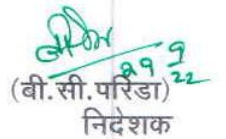 29 9
22
(बी.सी.परिडा)
निदेशक